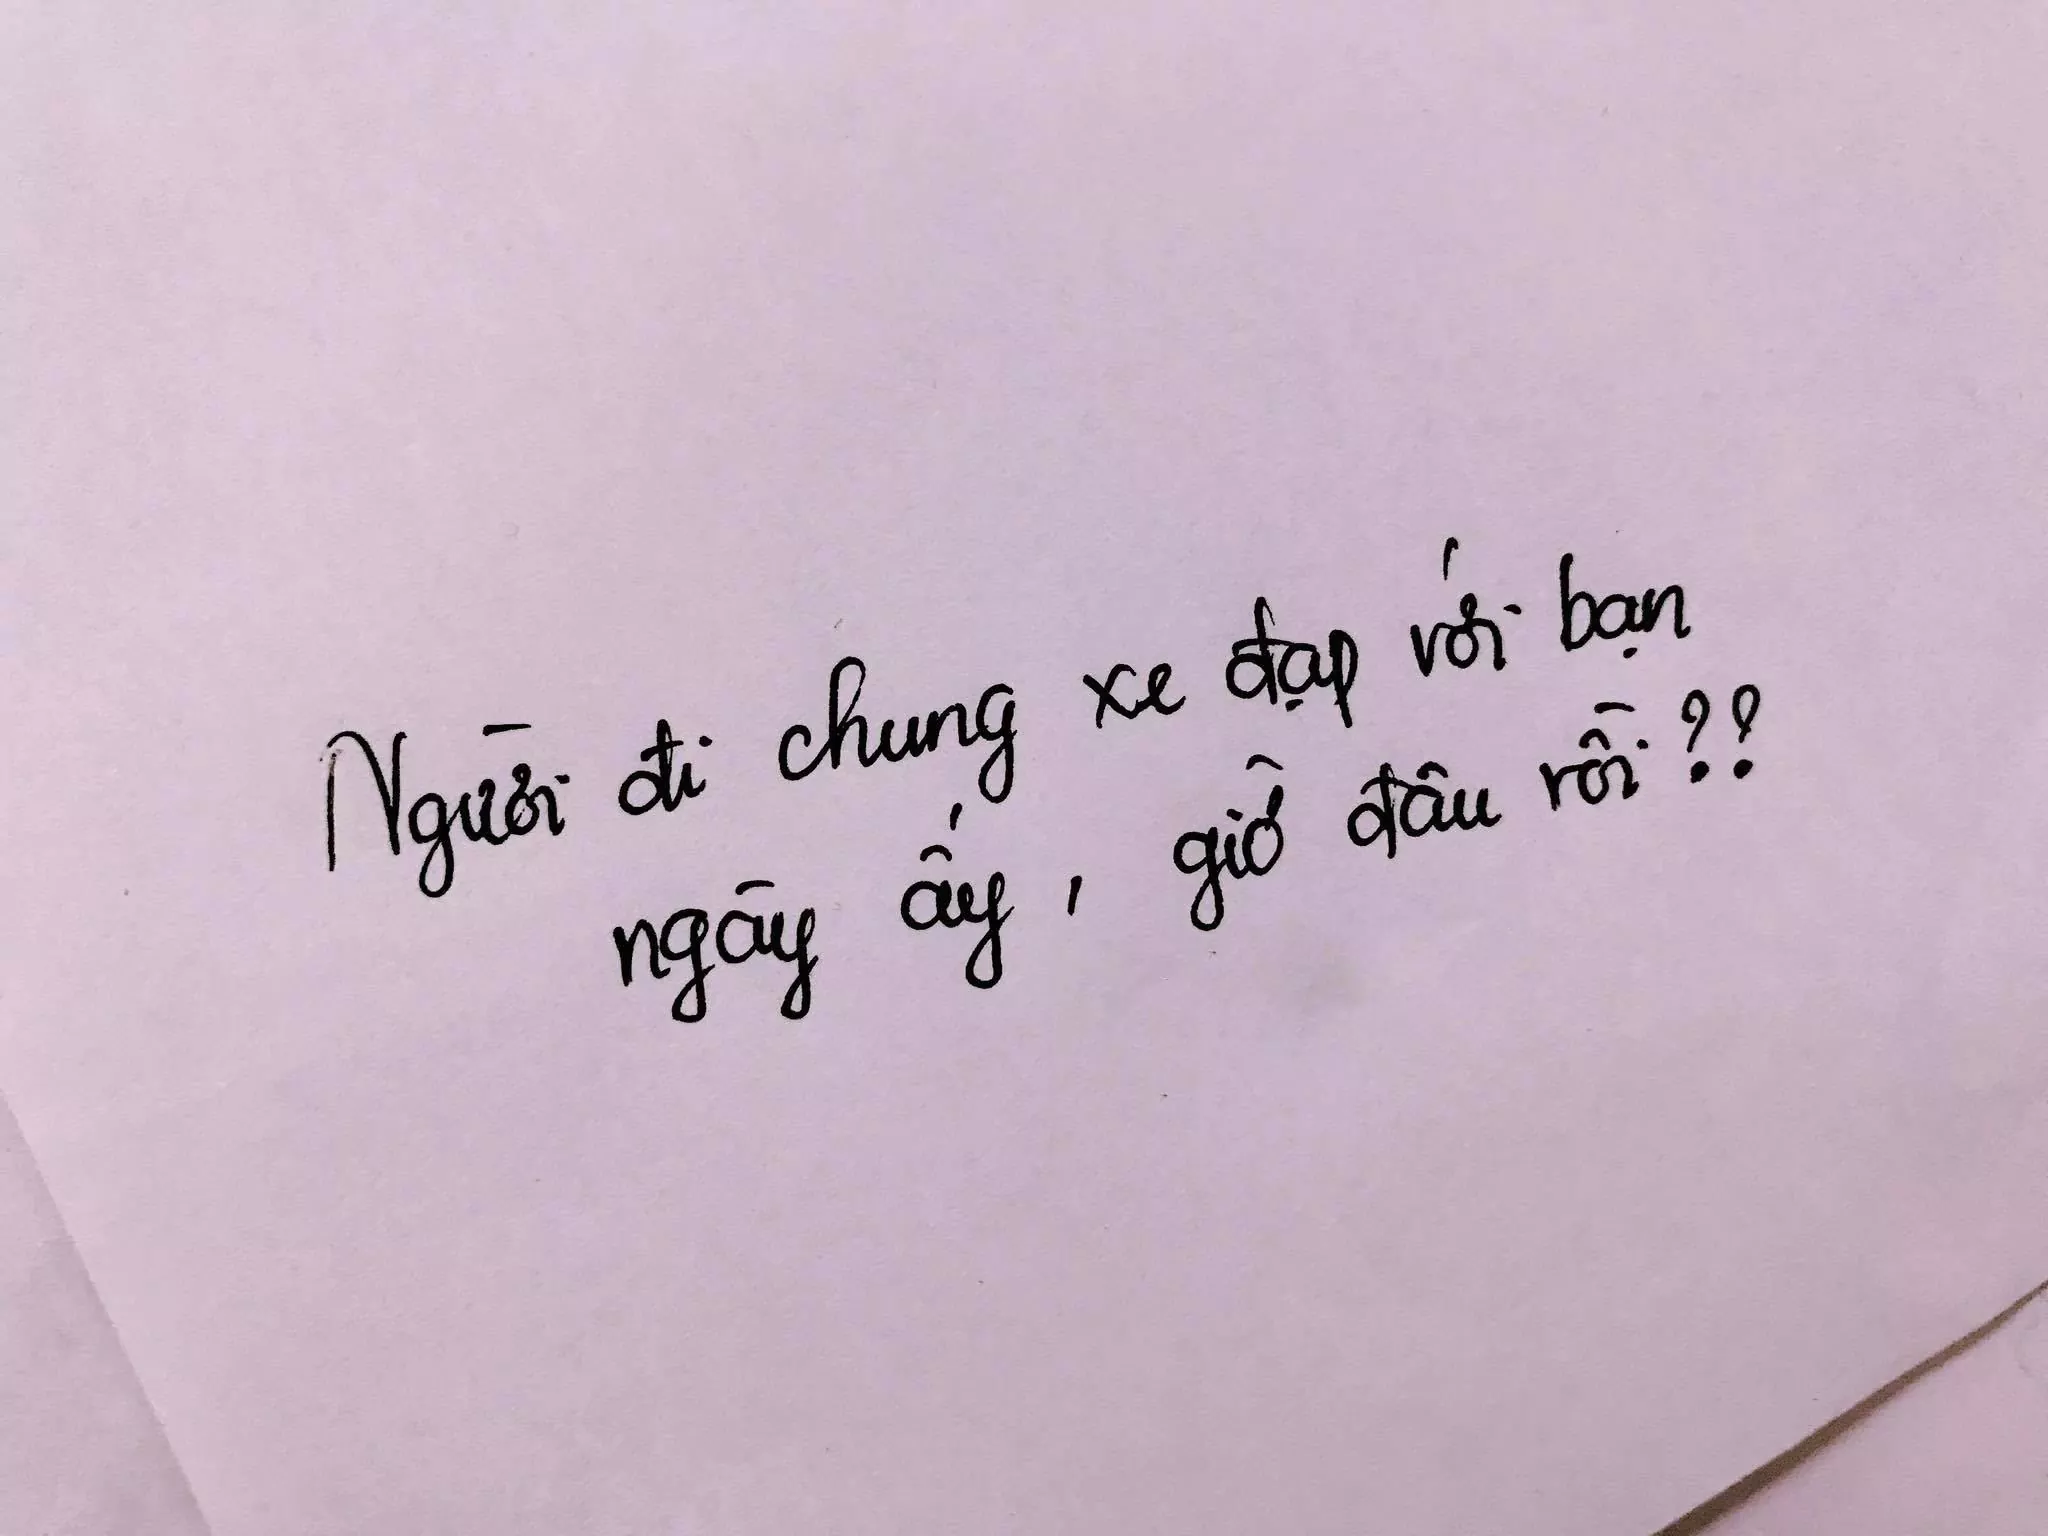 Người đi chung xe đạp với bạn
ngày ấy, giờ đâu rồi??